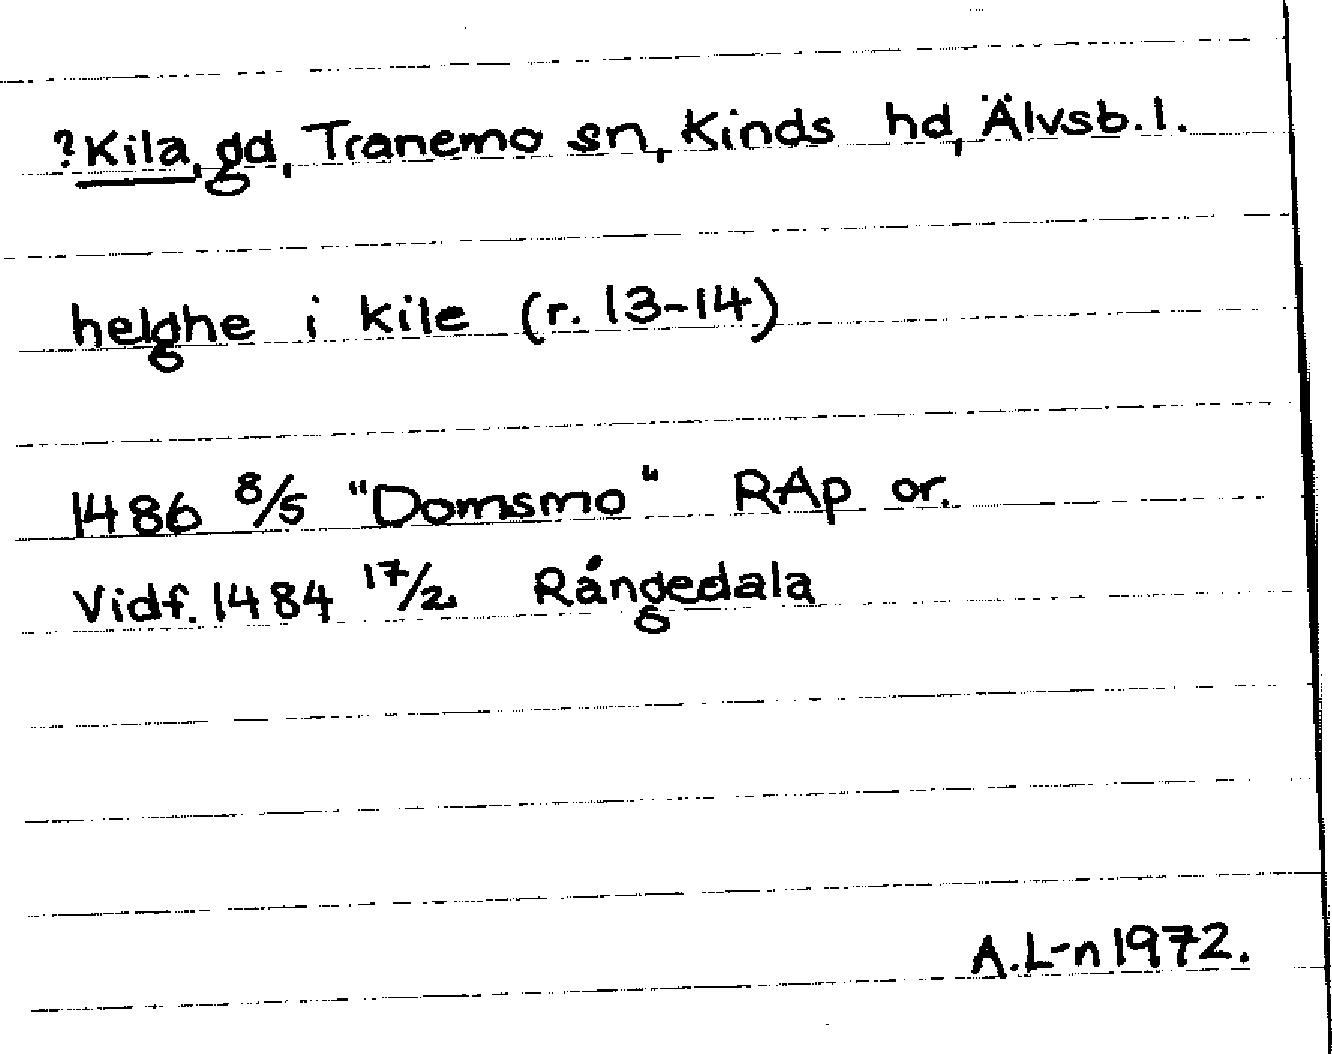 ?Kila, gd, Tranemo sn, Kinds hd, Älvsb. l.
helghe i kile (r. 13-14)
1486 8/5 "Domsmo" RAp or.
Vidf. 1484 17/2 Rångedala
A. L-n 1972.